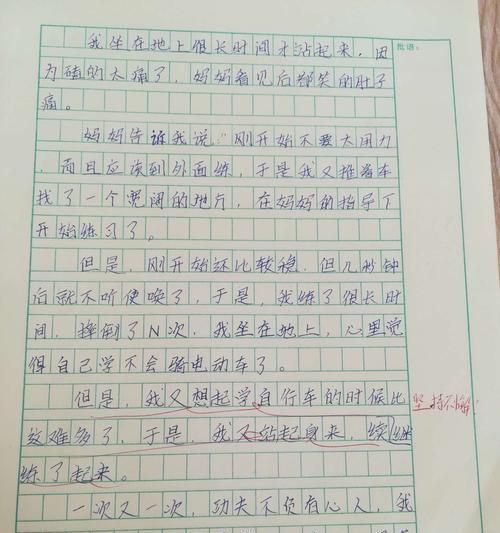 批语:
我坐在地上很长时间才站起来，因
为磕的太痛了，妈妈看见后都笑的肚子
痛。
妈妈告诉我说“刚开始不要太用力
，而且应该到外面练，于是我又推着车
找了一个宽阔的地方，在妈妈的指导下
开始练习了。
但是，刚开始还比较稳，但几秒钟
后就不听使唤了，于是，我练了很长时
间，摔倒了N次，我坐在地上，心里觉
得自己学不会骑电动车了。
但是，我又想起学自行车的时候比
这难多了，于是，我又站起身来，继续
练了起来。
坚持不懈
一次又一次，功夫不负有心人，我